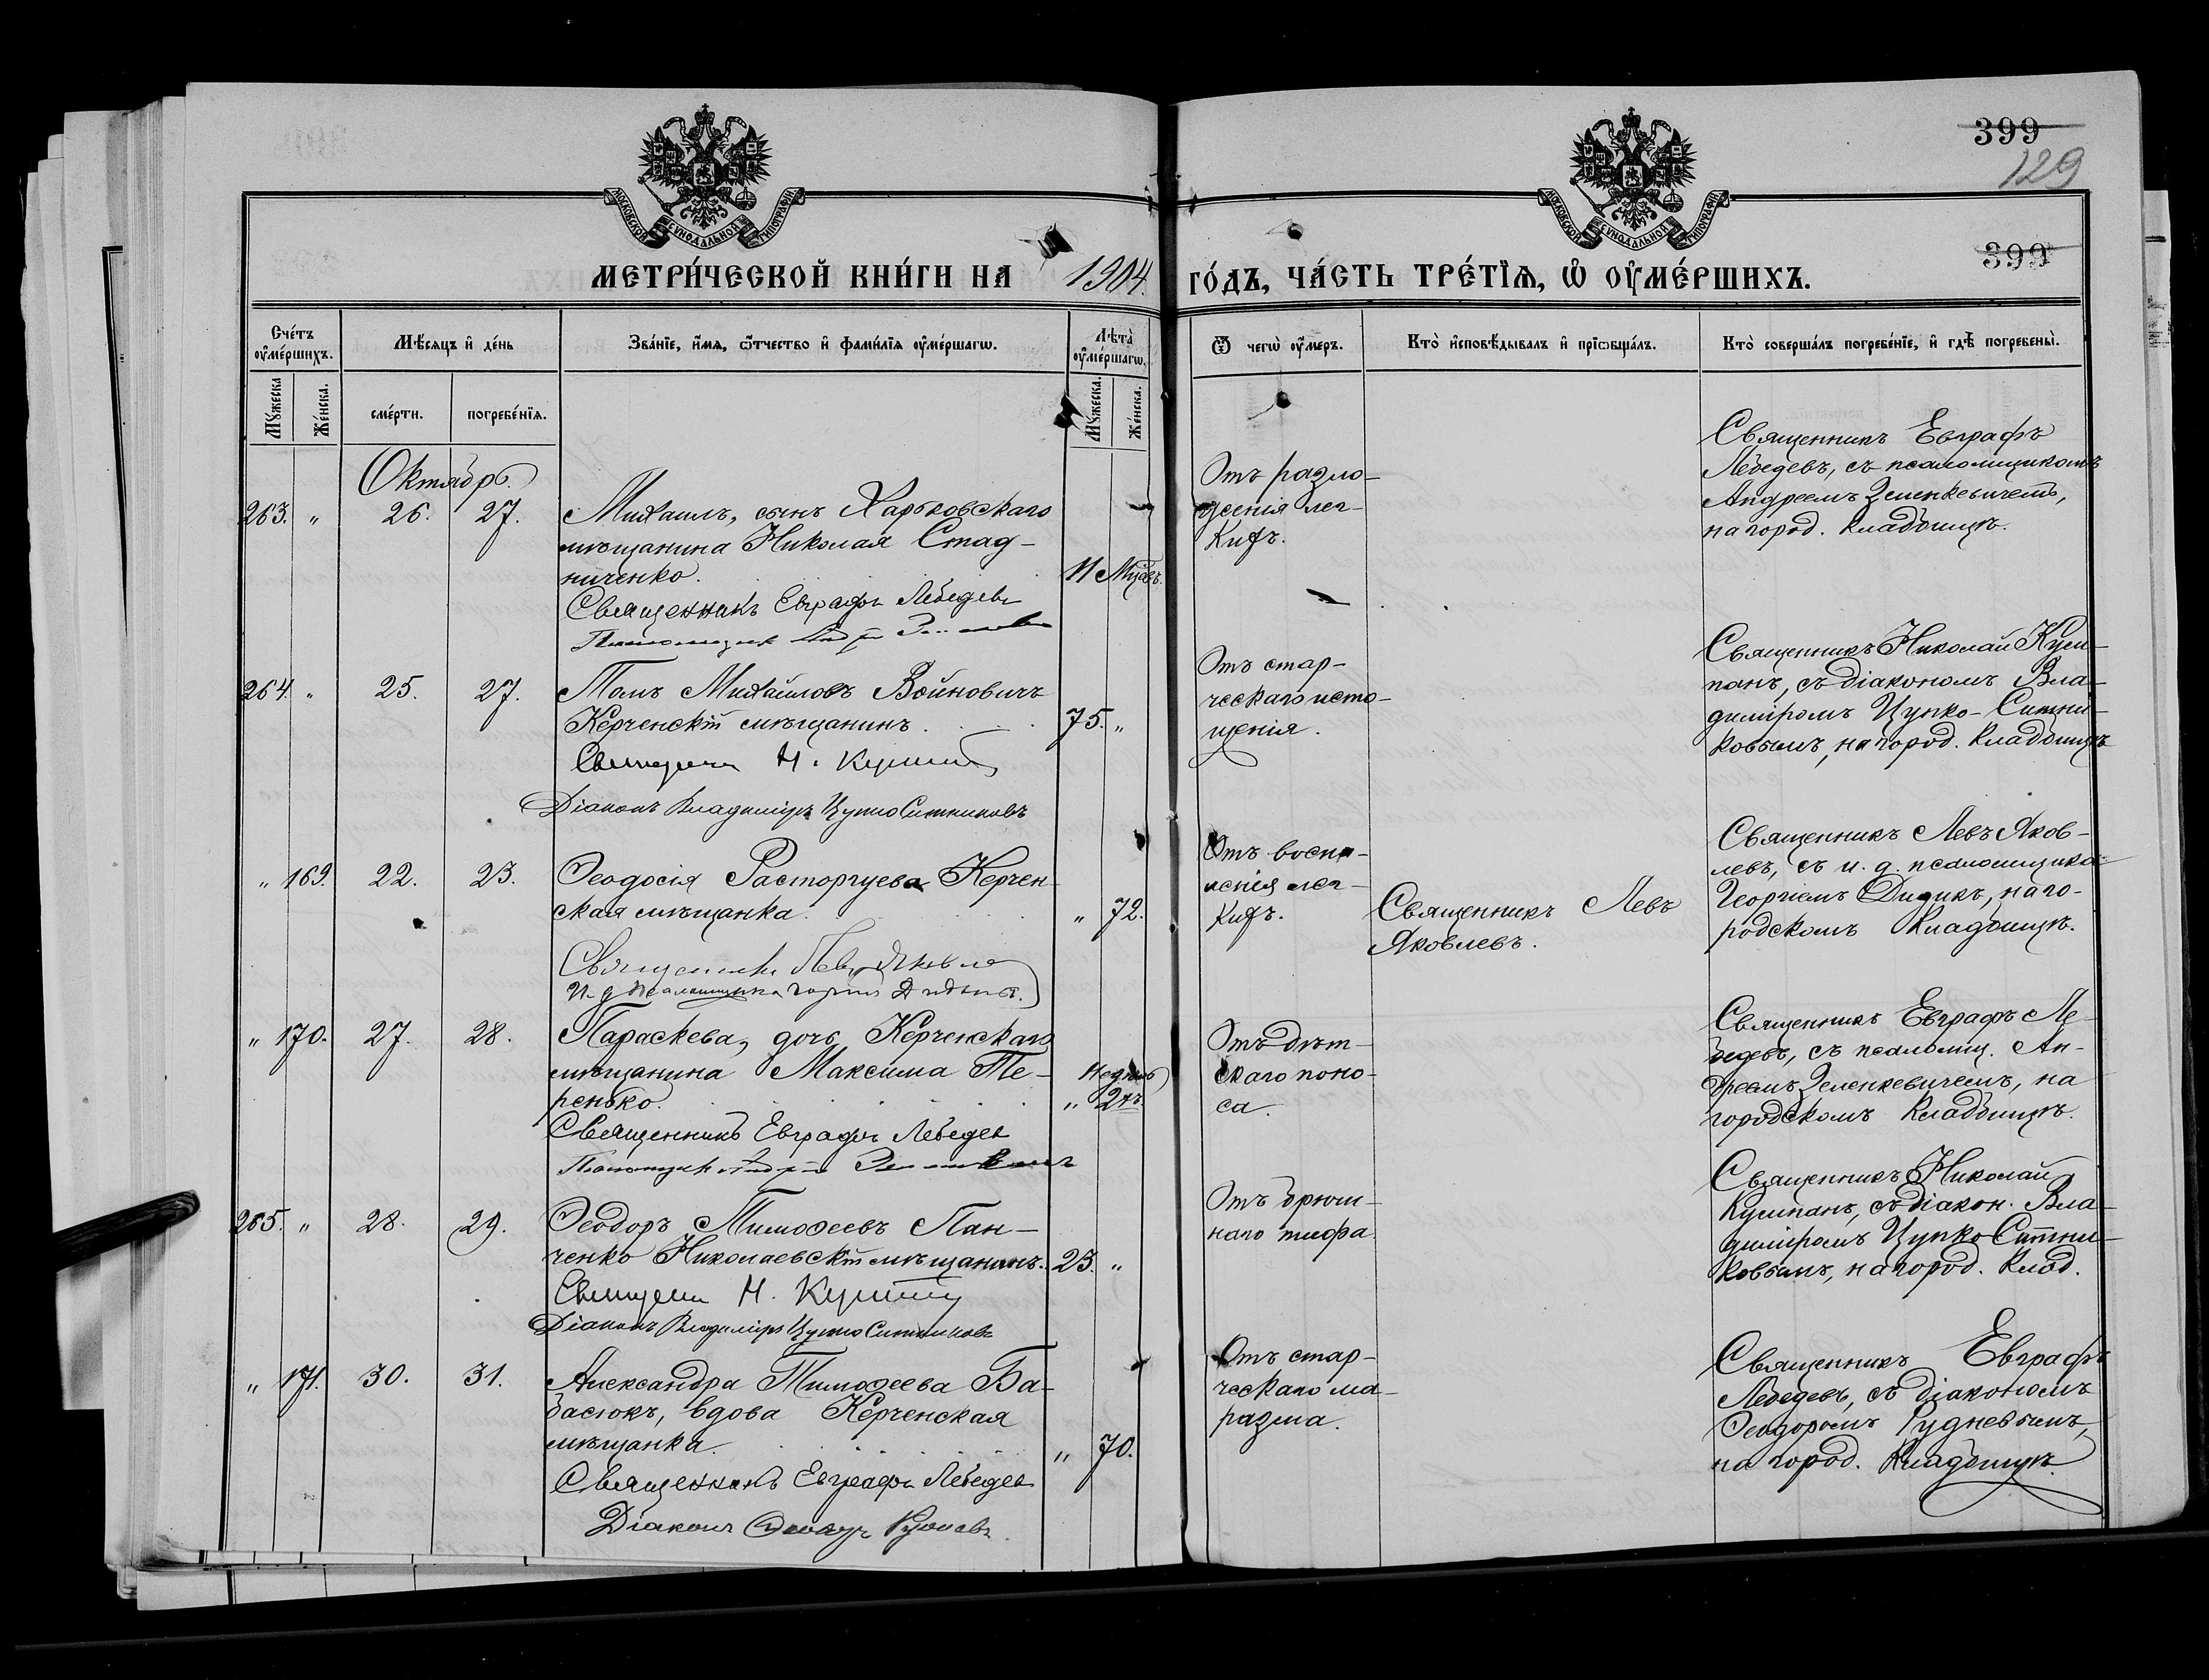 399
129
399
МОСКОВСКОЙ СѴНОДАЛЬНОЙ ТИПОГРАФІИ
МОСКОВСКОЙ СѴНОДАЛЬНОЙ ТИПОГРАФІИ
МЕТРИ́ЧЕСКОЙ КНИ́ГИ НА 1904. ГО́ДЪ, ЧА́СТЬ ТРЕ́ТЇѦ, Ѡ҆ ОУ҆МЕ́РШИХЪ.
Сче́тъ оу҆ме́ршихъ.
Мѣ́сяцъ и҆ де́нь
Зва́нїе, и҆́мя, ѻ҆́тчество и҆ фами́лїя оу҆ме́ршагѡ.
Лѣ́та оу҆ме́ршагѡ.
Ѿ чегѡ̀ оу҆́меръ.
Кто̀ и҆сповѣ́дывалъ и҆ прїѡбща́лъ.
Кто̀ соверша́лъ погребе́нїе, и҆ гдѣ̀ погребены̀.
Мꙋ́жеска
Же́нска.
сме́рти.
погребе́нїя.
Мꙋ́жеска.
Же́нска.
Октябрь.
263. " 26. 27.
Михаилъ, сынъ Харьковскаго
мѣщанина Николая Стад-
ниченко.
11 Мцовъ.
Священникъ Евграфъ Лебедевъ
Псаломщик
Отъ разло-
женія лег-
кихъ.
Священникъ Евграфъ
Лебедевъ, съ псаломщикомъ
Андреемъ Зеленкевичемъ,
на город. кладбищѣ.
264. " 25. 27.
Михайловъ Войновичъ
Керченскій мѣщанинъ.
75. "
Священник Н. Кушпан
Діаконъ Владиміръ Цупко Ситниковъ
Отъ стар-
ческаго исто-
щенія.
Священникъ Николай Куш-
панъ, съ діакономъ Вла-
диміромъ Цупко-Ситни-
ковымъ, на город. кладбищѣ
" 169. 22. 23.
Ѳеодосія Расторгуева Керчен-
ская мѣщанка.
" 72.
Священникъ Левъ Яковлев
И. д. псаломщика
Отъ воспа-
ленія лег-
кихъ.
Священникъ Левъ
Яковлевъ.
Священникъ Левъ Яков-
левъ, съ и. д. псаломщика
Георгіемъ Дидикъ, на го-
родскомъ кладбищѣ.
" 170. 27. 28.
Параскева, дочь Керченскаго
мѣщанина Максима Те-
ренько.
"
Священникъ Евграфъ Лебедев
Псаломщик
Отъ дѣт-
скаго поно-
са.
Священникъ Евграфъ Ле-
бедевъ, съ псаломщ. Ан-
дреемъ Зеленкевичемъ, на
городскомъ кладбищѣ.
265. " 28. 29.
Ѳеодоръ Тимоѳеевъ Пан-
ченко Николаевскій мѣщанинъ.
23. "
Священник Н. Кушпан
Діаконъ Владиміръ Цупко Ситниковъ
Отъ брюш-
наго тифа.
Священникъ Николай
Кушпанъ, съ діакон. Вла-
диміромъ Цупко Ситни-
ковымъ, на город. клад.
" 171. 30. 31.
Александра Тимоѳеева Ба-
басюкъ, вдова Керченская
мѣщанка.
" 70.
Священникъ Евграфъ Лебедев
Діаконъ Ѳеодоръ Рудневъ.
Отъ стар-
ческаго ма-
разма.
Священникъ Евграфъ
Лебедевъ, съ діакономъ
Ѳеодоромъ Рудневымъ,
на город. кладбищѣ.